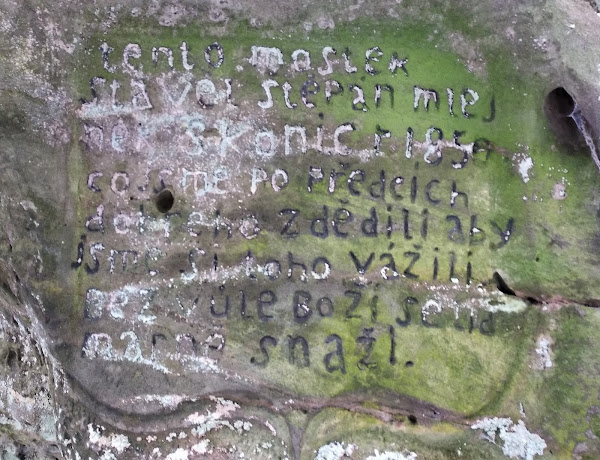 tento mostek
stavěl štěpán miej
nek s konic r 185
co jsme po předcích
dobrého zdědili aby
jsme si toho vážili.
BEZ vůle Boží se lid
marně snaží.